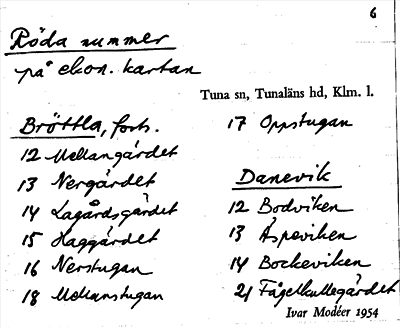 6
Röda nummer
på ekon. kartan
Tuna sn, Tunaläns hd, Klm. l.
Bröttla, forts.
12 Mellangärdet
13 Nergärdet
14 Lagårdsgärdet
15 Haggärdet
16 Nerstugan
18 Mellanstugan
17 Oppstugan
Danevik
12 Bodviken
13 Äspeviken
14 Bockeviken
21 Fågelkullegärdet
Ivar Modéer 1954